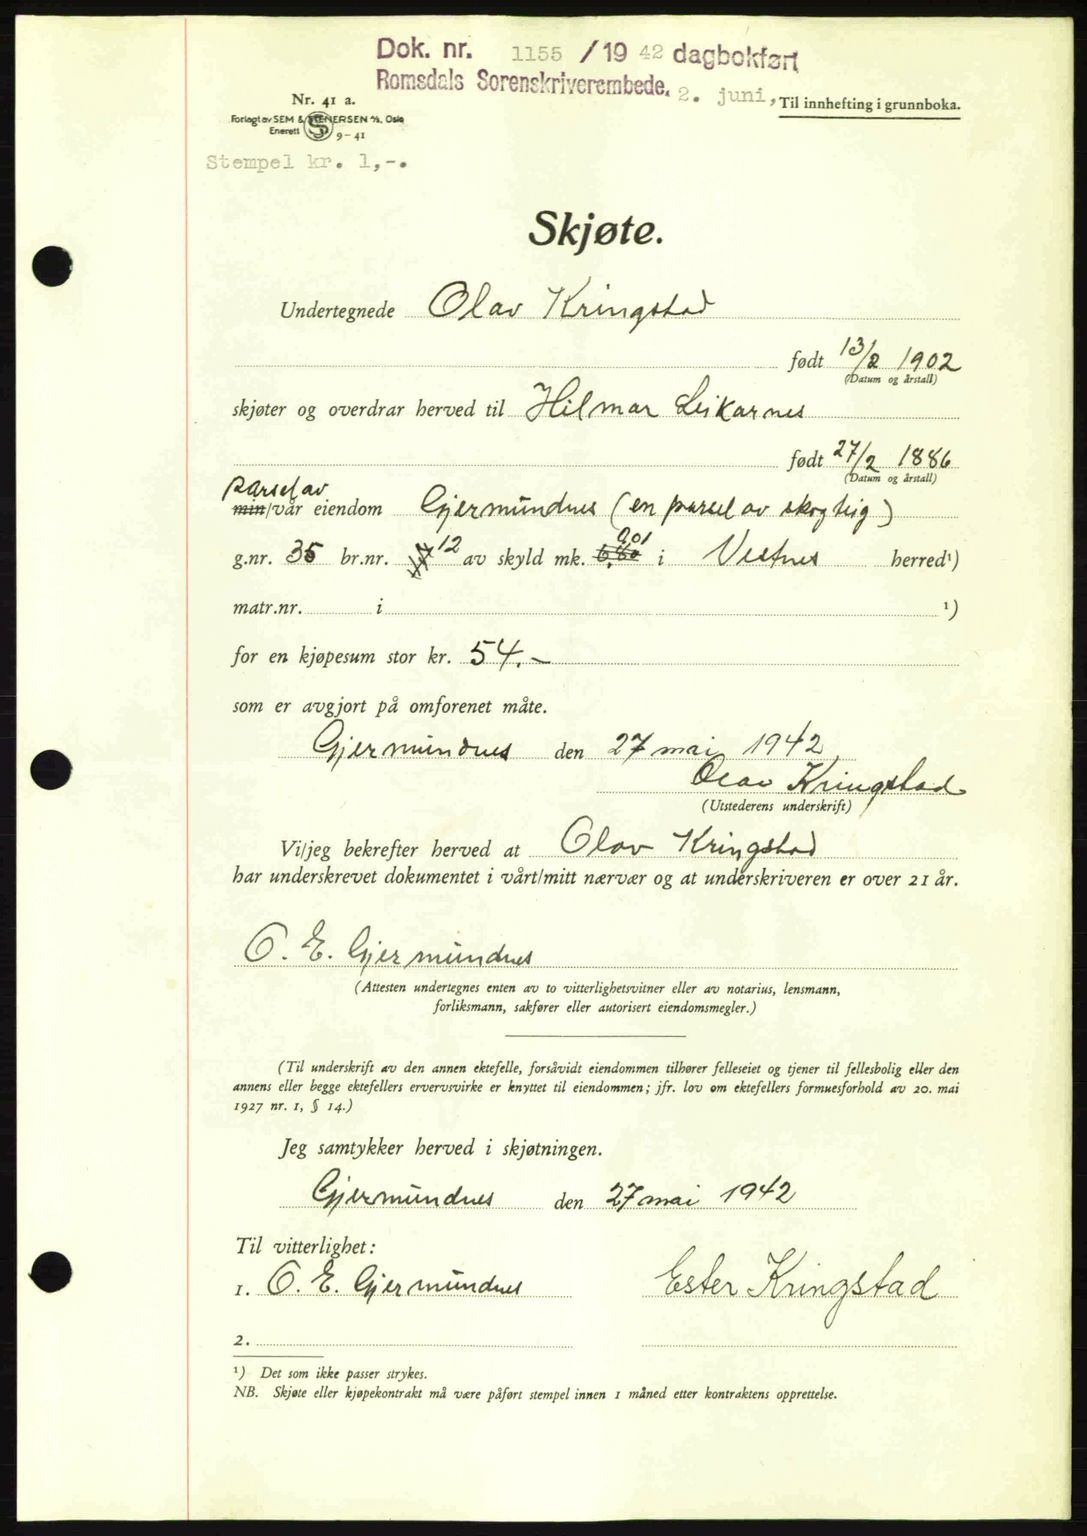 Dok. nr. 1155 / 19 42 dagbokført
Romsdals Sorenskriverembede. 2. juni,
Til innhefting i grunnboka.
Nr. 41 a.
Forlagt av SEM & STENERSEN A/S, Oslo
Enerett 9-41
Stempel kr. 1,-.
Skjøte.
Undertegnede Olav Kringstad
født 13/2 1902
(Datum og årstall)
skjøter og overdrar herved til Hilmar Leikarnes
født 27/2 1886
(Datum og årstall)
parsel av
min/vår eiendom Gjermundnes (en parsel av skogteig)
0,01
g.nr. 35 br.nr. 12 av skyld mk. 6,80 i Vestnes herred¹)
matr.nr. i ¹)
for en kjøpesum stor kr. 54.-
som er avgjort på omforenet måte.
Gjermundnes den 27 mai 1942
Olav Kringstad
(Utstederens underskrift)
Vi/jeg bekrefter herved at Olav Kringstad
har underskrevet dokumentet i vårt/mitt nærvær og at underskriveren er over 21 år.
O. E. Gjermundnes
(Attesten undertegnes enten av to vitterlighetsvitner eller av notarius, lensmann,
forliksmann, sakfører eller autorisert eiendomsmegler.)
(Til underskrift av den annen ektefelle, forsåvidt eiendommen tilhører felleseiet og tjener til fellesbolig eller den
annens eller begge ektefellers ervervsvirke er knyttet til eiendommen; jfr. lov om ektefellers formuesforhold av 20. mai
1927 nr. 1, § 14.)
Jeg samtykker herved i skjøtningen.
Gjermundnes den 27 mai 1942
Til vitterlighet:
1. O. E. Gjermundnes Ester Kringstad
2.
¹) Det som ikke passer strykes.
NB. Skjøte eller kjøpekontrakt må være påført stempel innen 1 måned etter kontraktens opprettelse.